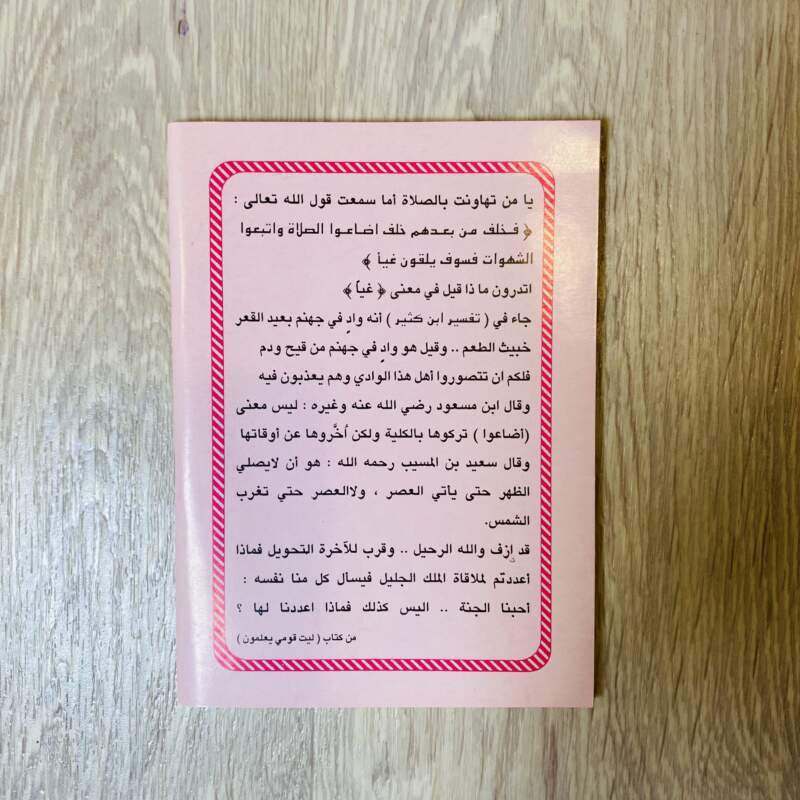 يا من تهاونت بالصلاة أما سمعت قول الله تعالى :
﴿ فـخلف من بعـدهم خلف اضـاعـوا الصلاة واتبعوا
الشهوات فسوف يلقون غيـأ ﴾
اتدرون ما ذا قيل في معنى ﴿ غيأ ﴾
جاء في ( تفسير ابن كثير ) أنه وادٍ في جهنم بعيد القعر
خبيث الطعم .. وقيل هو وادٍ في جهنم من قيح ودم
فلكم ان تتصوروا أهل هذا الوادي وهم يعذبون فيه
وقال ابن مسعود رضي الله عنه وغيره : ليس معنى
(أضاعوا ) تركوها بالكلية ولكن أخَّروها عن أوقاتها
وقال سعيد بن المسيب رحمه الله : هو أن لايصلي
الظهر حتى يأتي العصر ، ولاالعصر حتي تغرب
الشمس.
قد إزف والله الرحيل .. وقرب للآخرة التحويل فماذا
أعددتم لملاقاة الملك الجليل فيسأل كل منا نفسه :
أحبنا الجنة .. اليس كذلك فماذا اعددنا لها ؟
من كتاب ( ليت قومي يعلمون )